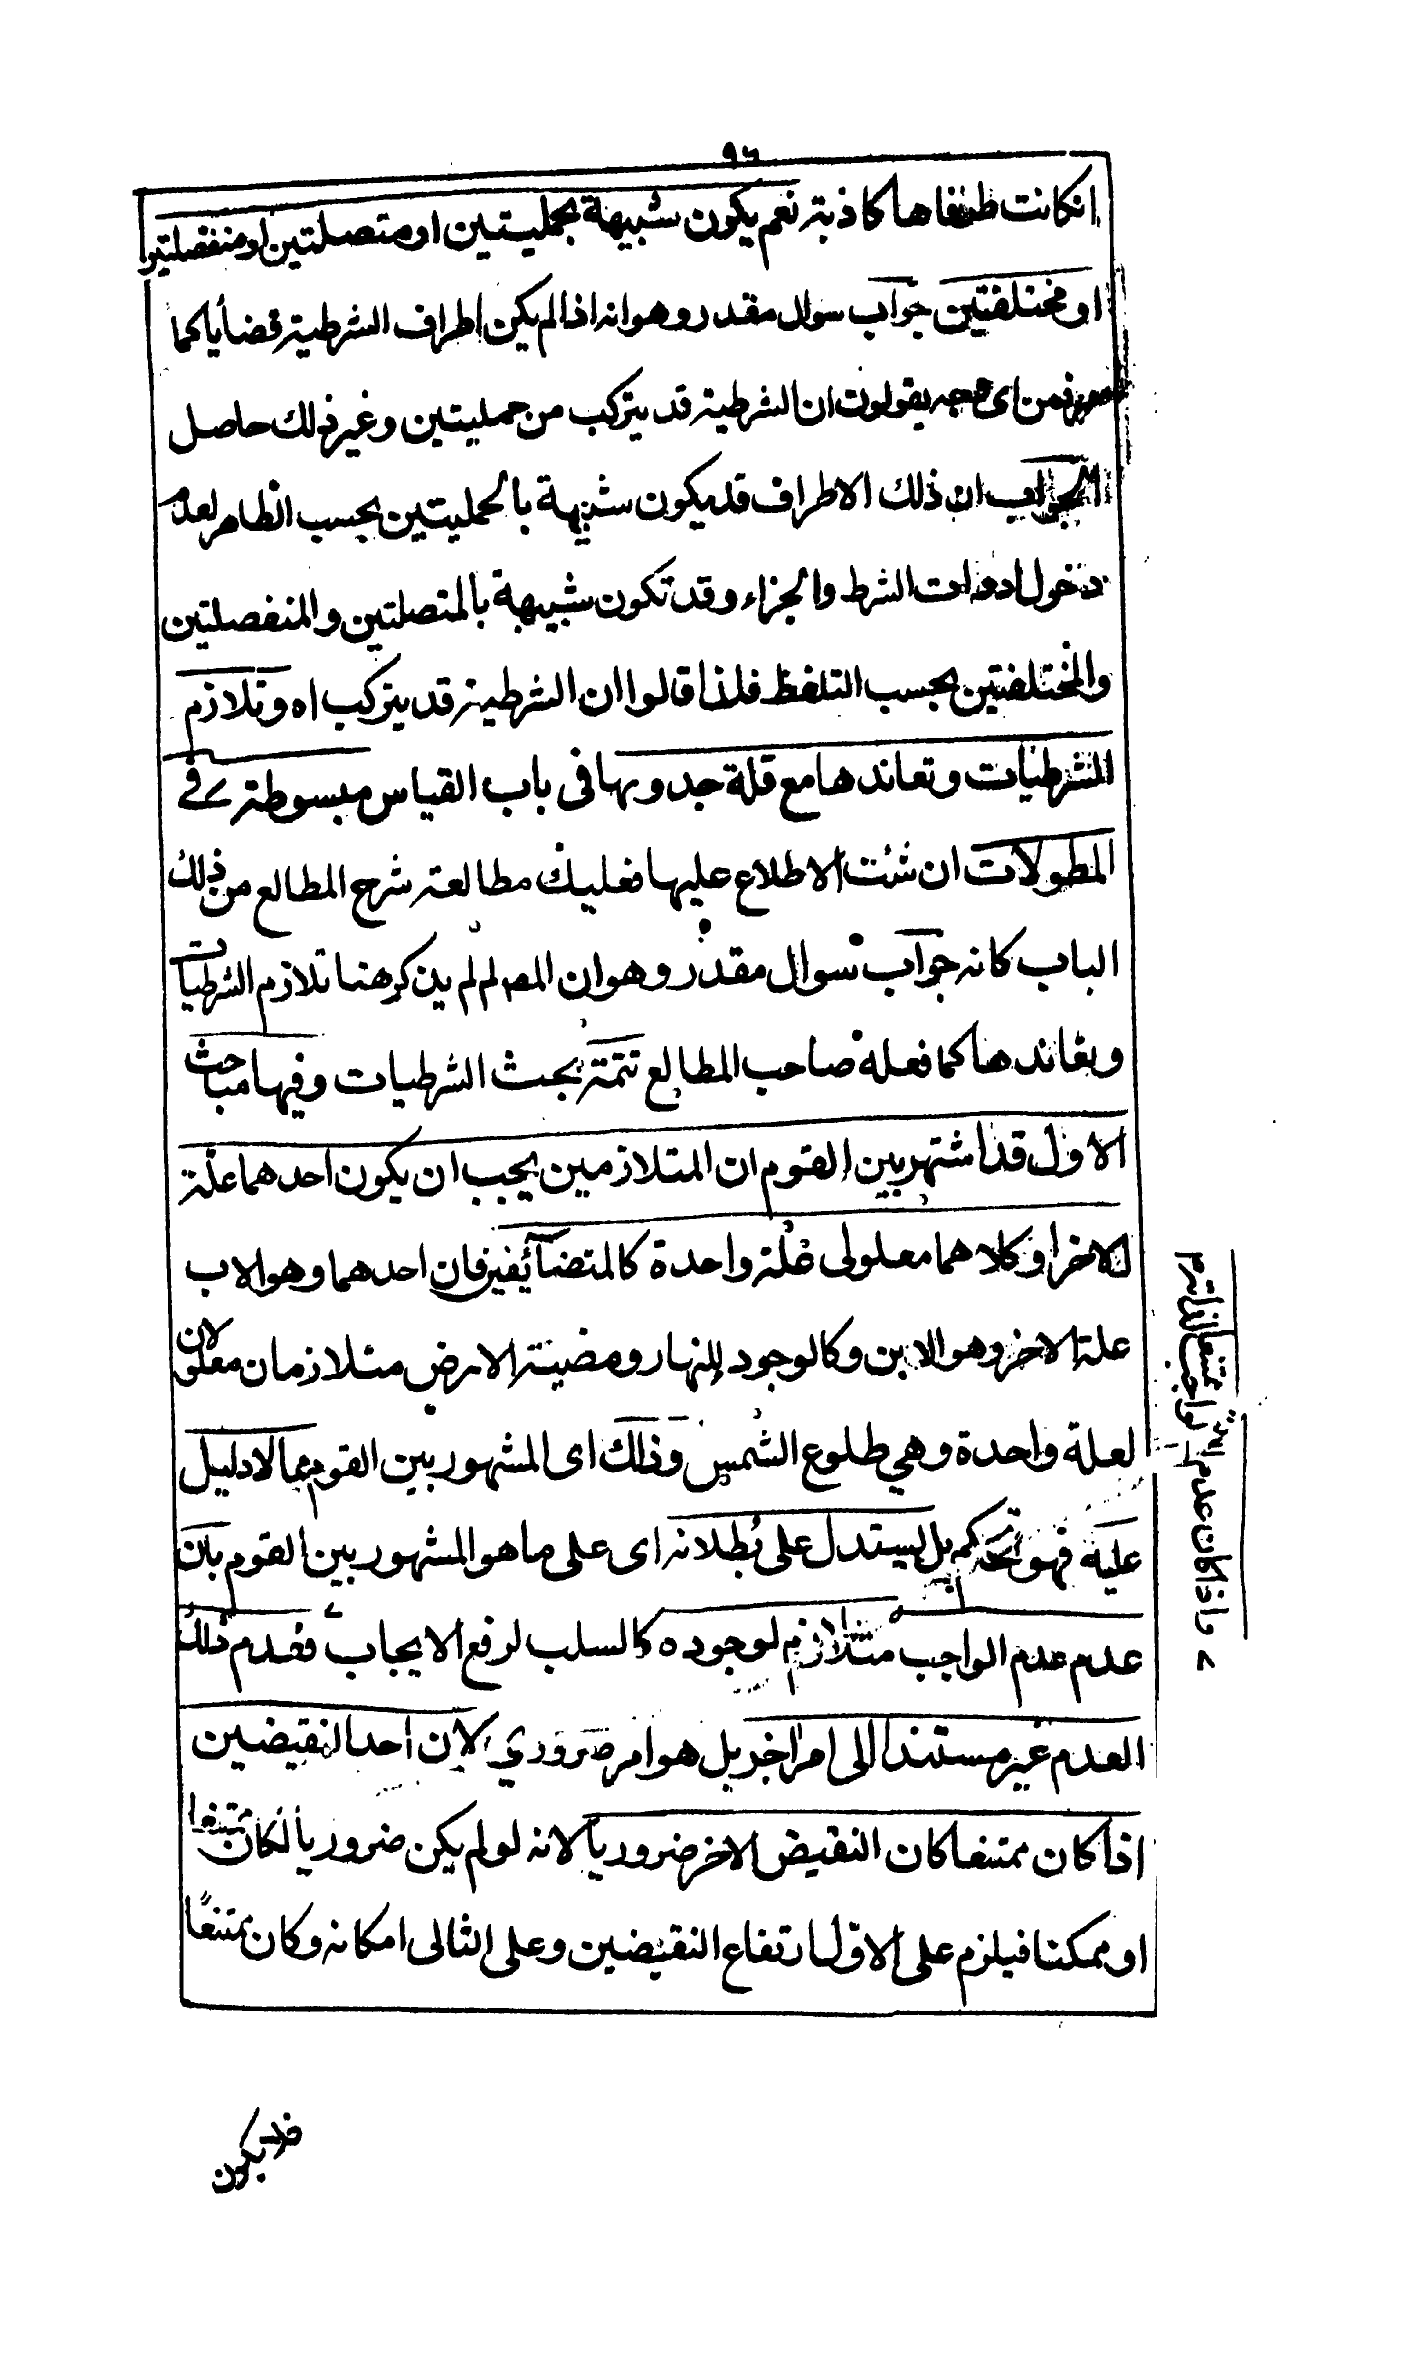 ٩٦
انكانت طرفاها كاذبة نعم يكون شبيهة بحمليتين او متصلتين او منفصلتين
او مختلفتين جواب سوال مقدر وهو انه اذا لم يكن اطراف الشرطية قضايا كما
من اى وجه يقولون ان الشرطية قد يتركب من حمليتين وغير ذلك حاصل
الجواب ان ذلك الاطراف قد يكون شبيهة بالحمليتين بحسب الظاهر لعدم
دخول ادوات الشرط والجزاء وقد تكون شبيهة بالمتصلتين والمنفصلتين
والمختلفتين بحسب التلفظ فلذا قالوا ان الشرطية قد يتركب اه وتلازم
الشرطيات وتعاندها مع قلة جدويها فى باب القياس مبسوطة فے
المطولات ان شئت الاطلاع عليها فعليك مطالعة شرح المطالع من ذلك
الباب كانه جواب سوال مقدر وهو ان المصـ لم لم يذكر هنا تلازم الشرطيات
وتعاندها كما فعله صاحب المطالع تتمة بحث الشرطيات وفيها مباحث
الاول قد اشتهر بين القوم ان المتلازمين يجب ان يكون احدهما علة
للاخر او كلاهما معلولى علة واحدة كالمتضائفين فان احدهما وهو الاب
علة الاخر وهو الابن وكالوجود للنهار ومضيئة الارض متلازمان معلولان
لعلة واحدة وهي طلوع الشمس وذلك اى المشهور بين القوم مما لا دليل
عليه فهو تحكم بل يستدل على بطلانه اى على ما هو المشهور بين القوم بان
عدم عدم الواجب متلازم لوجوده كالسلب لرفع الايجاب فعدم ذلك
العدم غير مستندا الى امر اخر بل هو امر ضروري لان احد النقيضين
اذا كان ممتنعا كان النقيض الاخر ضروريا لانه لو لم يكن ضروريا لكان ممتنعا
او ممكنا فيلزم على الاول ارتفاع النقيضين وعلى الثانى امكانه وكان ممتنعًا
فاذا كان عدم الواجب ممتنعا لذاته
قد يكون